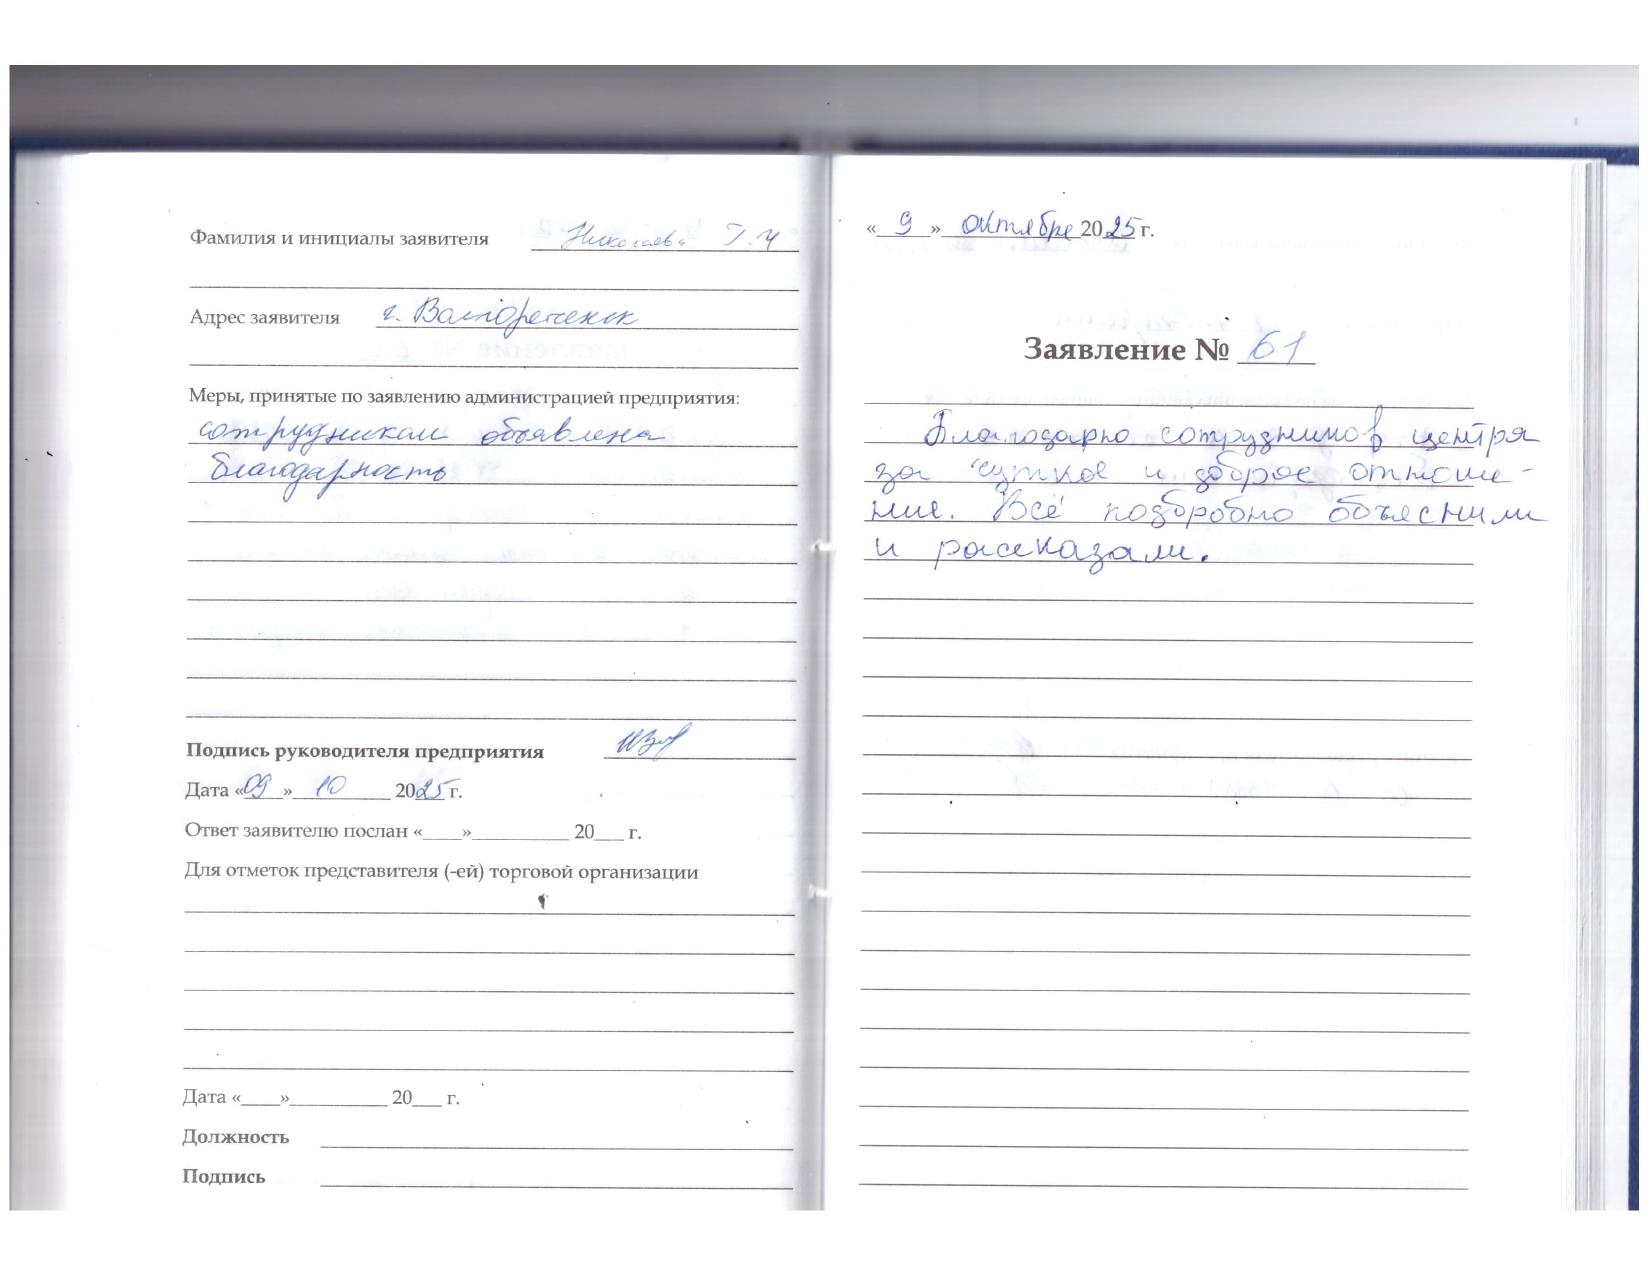 Фамилия и инициалы заявителя Николаева Г.И
Адрес заявителя г. Волгореченск
Меры, принятые по заявлению администрацией предприятия:
сотрудникам объявлена
благодарность
Подпись руководителя предприятия
Дата «09» 10 2025 г.
Ответ заявителю послан «____»__________ 20___ г.
Для отметок представителя (-ей) торговой организации
Дата «____»__________ 20___ г.
Должность
Подпись
«9» октября 2025 г.
Заявление № 61
Благодарю сотрудников центра
за чуткое и доброе отноше-
ние. Всё подробно объяснили
и рассказали.